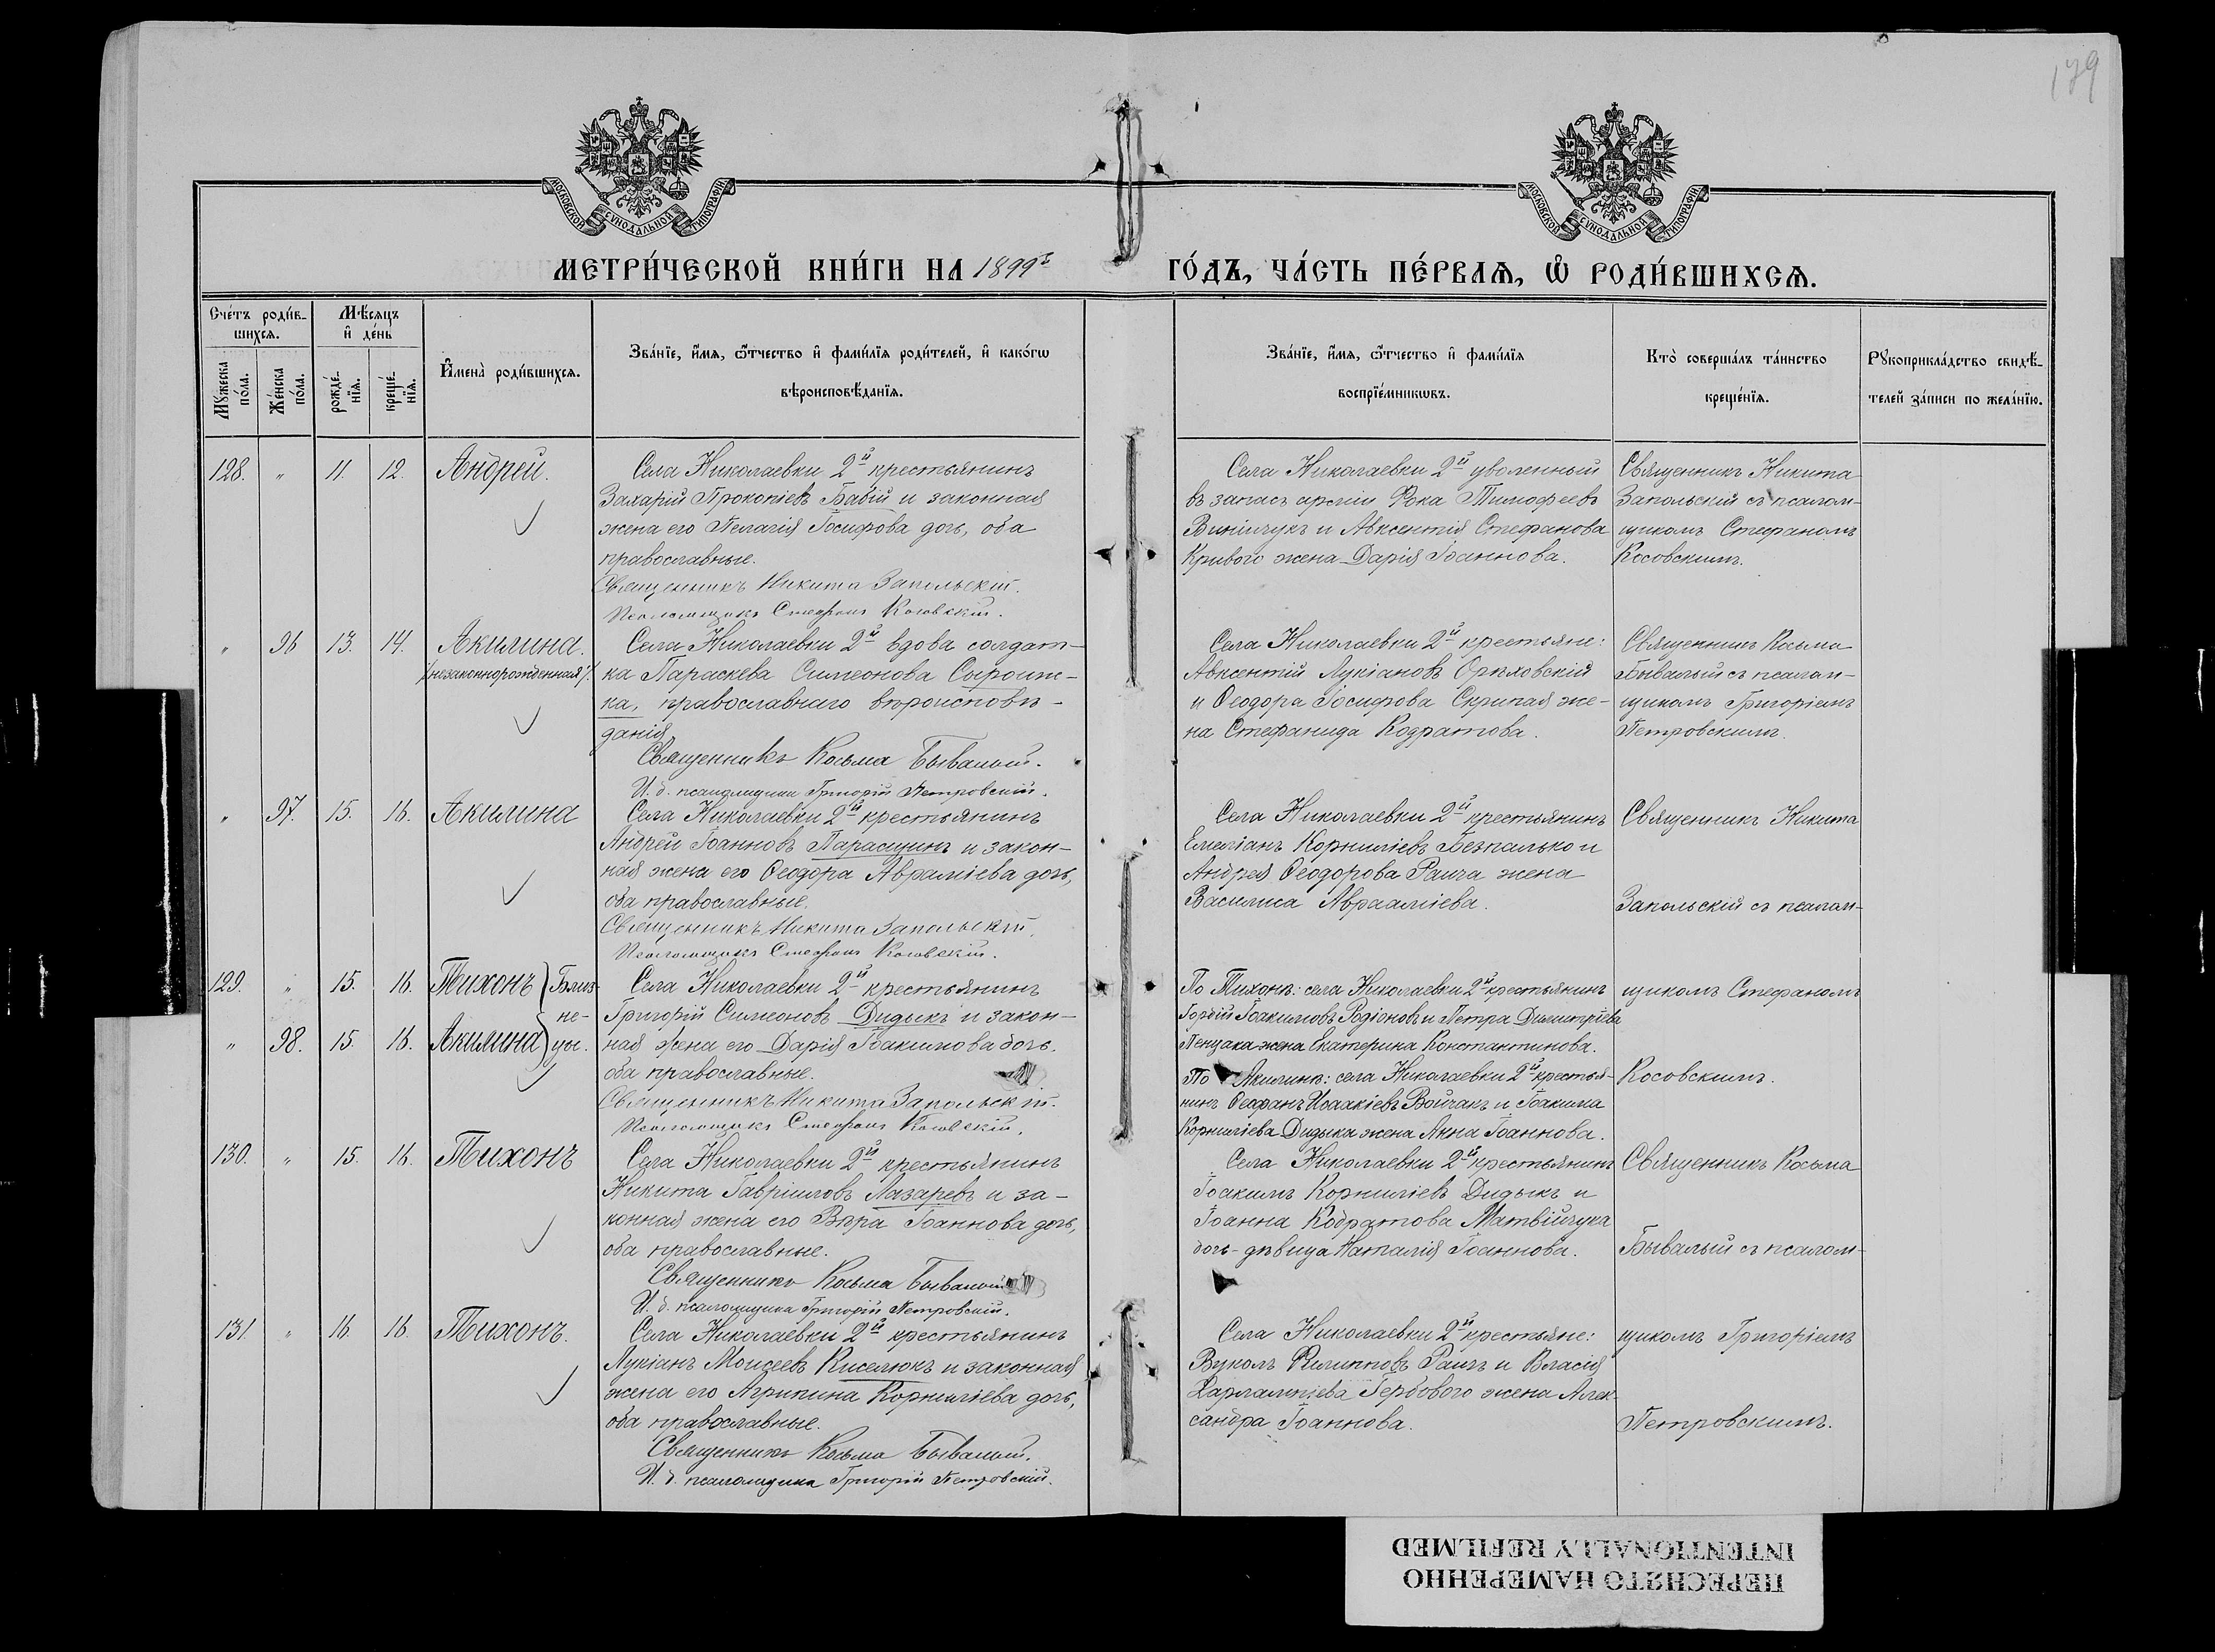 179
МОСКОВСКОЙ СѴНОДАЛЬНОЙ ТИПОГРАФІИ
МОСКОВСКОЙ СѴНОДАЛЬНОЙ ТИПОГРАФІИ
МЕТРИ́ЧЕСКОЙ КНИ́ГИ НА 1899й ГО́ДЪ, ЧА́СТЬ ПЕ́РВАѦ, Ѡ РОДИ́ВШИХСѦ.
Сче́тъ роди́в-
шихсѧ.
Мѣ́сѧцъ
и҆ де́нь
Мꙋ́жеска
по́ла.
Же́нска
по́ла.
рожде́-
нїѧ.
креще́-
нїѧ.
И҆мена̀ роди́вшихсѧ.
Зва́нїе, и҆́мѧ, ѻ҆́тчество и҆ фами́лїѧ роди́телей, и҆ како́гѡ
вѣроисповѣ́данїѧ.
Зва́нїе, и҆́мѧ, ѻ҆́тчество и҆ фами́лїѧ
воспрїе́мникѡвъ.
Кто̀ соверша́лъ та́инство
креще́нїѧ.
Рꙋкоприкла́дство свидѣ́-
телей за́писи по жела́нїю.
128. " 11. 12. Андрей.
Села Николаевки 2й крестьянинъ
Захарій Прокопіевъ Бабій и законная
жена его Пелагія Іосифова дочь, оба
православные.
Священникъ Никита Запольскій.
Псаломщикъ Стефанъ Косовскій.
Села Николаевки 2й уволенный
въ запасъ арміи Фока Тимофеевъ
Винничукъ и Авксентія Стефанова
Кривого жена Дарія Іоаннова.
Священникъ Никита
Запольскій съ псалом-
щикомъ Стефаномъ
Косовскимъ.
" 96 13. 14. Акилина.
/незаконнорожденная/.
Села Николаевки 2й вдова солдат-
ка Параскева Симеонова Сыроит-
ка, православнаго вѣроисповѣ-
данія
Священникъ Косьма Бывалый.
И. д. псаломщика Григорій Петровскій.
Села Николаевки 2й крестьяне:
Авксентій Лукіановъ Орѣховскій
и Ѳеодора Іосифова Скрипая же-
на Стефанида Кодратова.
Священникъ Косьма
Бывалый съ псалом-
щикомъ Григоріемъ
Петровскимъ.
" 97. 15. 16. Акилина
Села Николаевки 2й крестьянинъ
Андрей Іоанновъ Паращинъ и закон-
ная жена его Ѳеодора Авраміева дочь,
оба православные.
Священникъ Никита Запольскій.
Псаломщикъ Стефанъ Косовскій.
Села Николаевки 2й крестьянинъ
Емеліанъ Корниліевъ Безпалько и
Андрея Ѳеодорова Раича жена
Василиса Авраамiева.
Священникъ Никита
Запольскій съ псалом-
129. " 15. 16. Тихонъ
" 98. 15. 16. Акилина
Близ-
не-
цы.
Села Николаевки 2й крестьянинъ
Григорій Симеоновъ Дидыкъ и закон-
ная жена его Дарія Іоакимова дочь,
оба православные.
Священникъ Никита Запольскій.
Псаломщикъ Стефанъ Косовскій.
По Тихонѣ: села Николаевки 2й крестьянинъ
Гордій Іоакимовъ Родіоновъ и Петра Димитріева
жена Екатерина Константинова.
По Акилинѣ: села Николаевки 2й крестья-
нинъ Ѳеофанъ Исаакіевъ Войчакъ и Іоакима
Корниліева Дидыка жена Анна Іоаннова.
щикомъ Стефаномъ
Косовскимъ.
130. " 15. 16. Тихонъ
Села Николаевки 2й крестьянинъ
Никита Гавріиловъ Лазаревъ и за-
конная жена его Вѣра Іоаннова дочь,
оба православные.
Священникъ Косьма Бывалый
И. д. псаломщика Григорій Петровскій.
Села Николаевки 2й крестьянинъ
Іоакимъ Корниліевъ Дидыкъ и
Іоанна Кодратова Матвійчука
дочь-дѣвица Наталія Іоаннова.
Священникъ Косьма
Бывалый съ псалом-
131. " 16. 16. Тихонъ.
Села Николаевки 2й крестьянинъ
Лукіанъ Моисеевъ Киселюкъ и законная
жена его Агрипина Корниліева дочь,
оба православные.
Священникъ Косьма Бывалый.
И. д. псаломщика Григорій Петровскій.
Села Николаевки 2й крестьяне:
Вуколъ Филипповъ Раичъ и Власія
Харлампіева Гербового жена Алек-
сандра Іоаннова.
щикомъ Григоріемъ
Петровскимъ.
ПЕРЕСНЯТО НАМЕРЕННО
INTENTIONALLY REFILMED